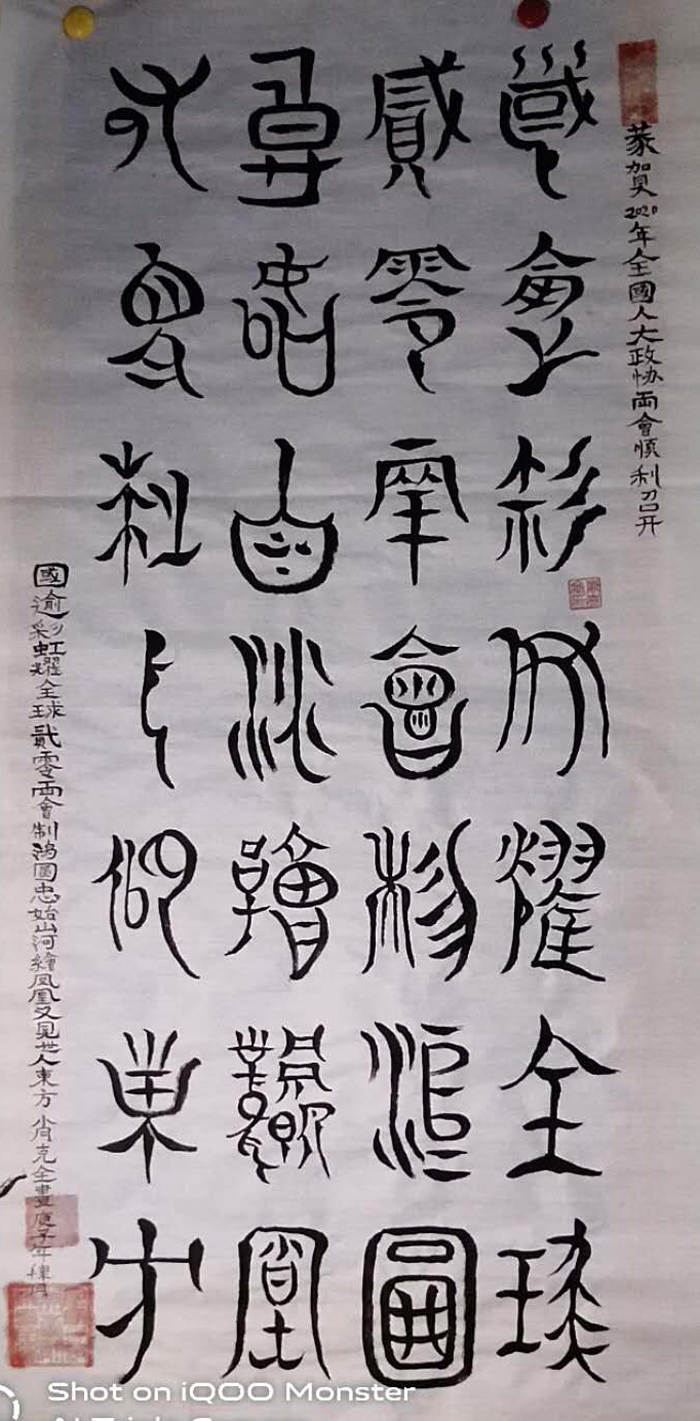 恭賀2020年全國人大政协兩會順利召开
國逾彩虹耀全球
貳零兩會制鴻圖
忠始山河繪鳳凰
又見世人仰東方
國逾彩虹耀全球貳零兩會制鴻圖忠始山河繪凤凰又見世人東方 肖克全書庚子年
Shot on iQOO Monster